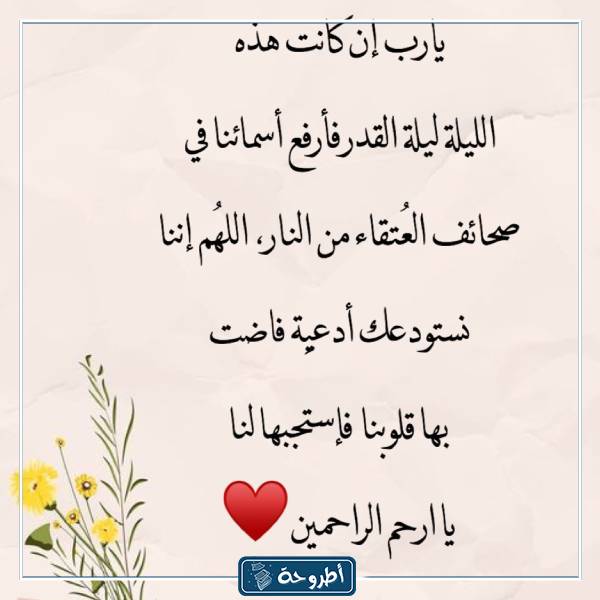 يارب إن كانت هذه
الليلة ليلة القدر فأرفع أسمائنا في
صحائف العُتقاء من النار، اللهُم إننا
نستودعك أدعية فاضت
بها قلوبنا فإستجبها لنا
يا ارحم الراحمين
أطروحة